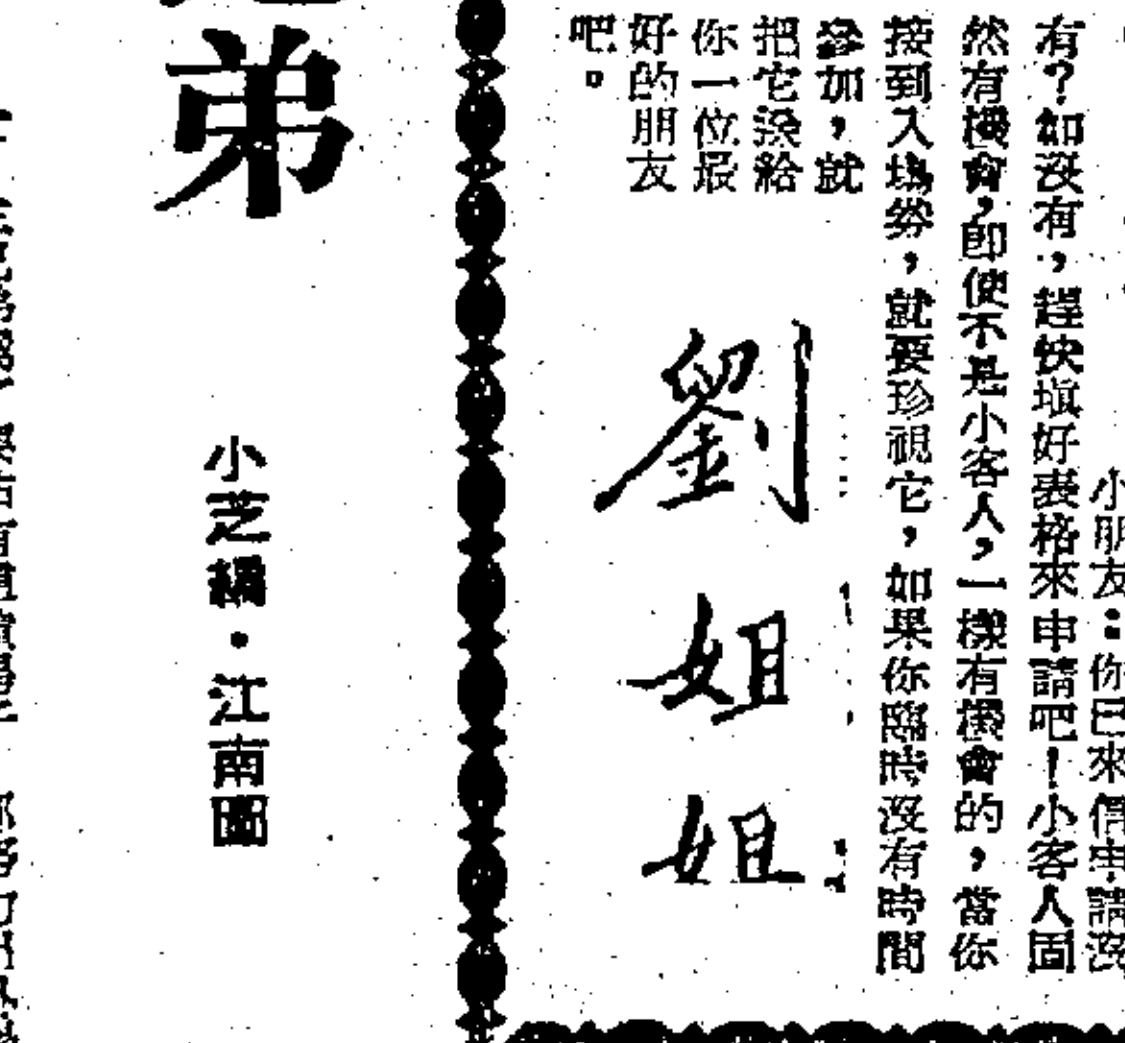 小朋友：你已來信申請沒
有？如沒有，趕快塡好表格來申請吧！小客人固
然有機會，即使不是小客人，一樣有機會的，當你
接到入塲劵，就要珍視它，如果你臨時沒有時間
參加，就
把它送給
你一位最
好的朋友
吧。
劉姐姐
弟
小芝編·江南圖